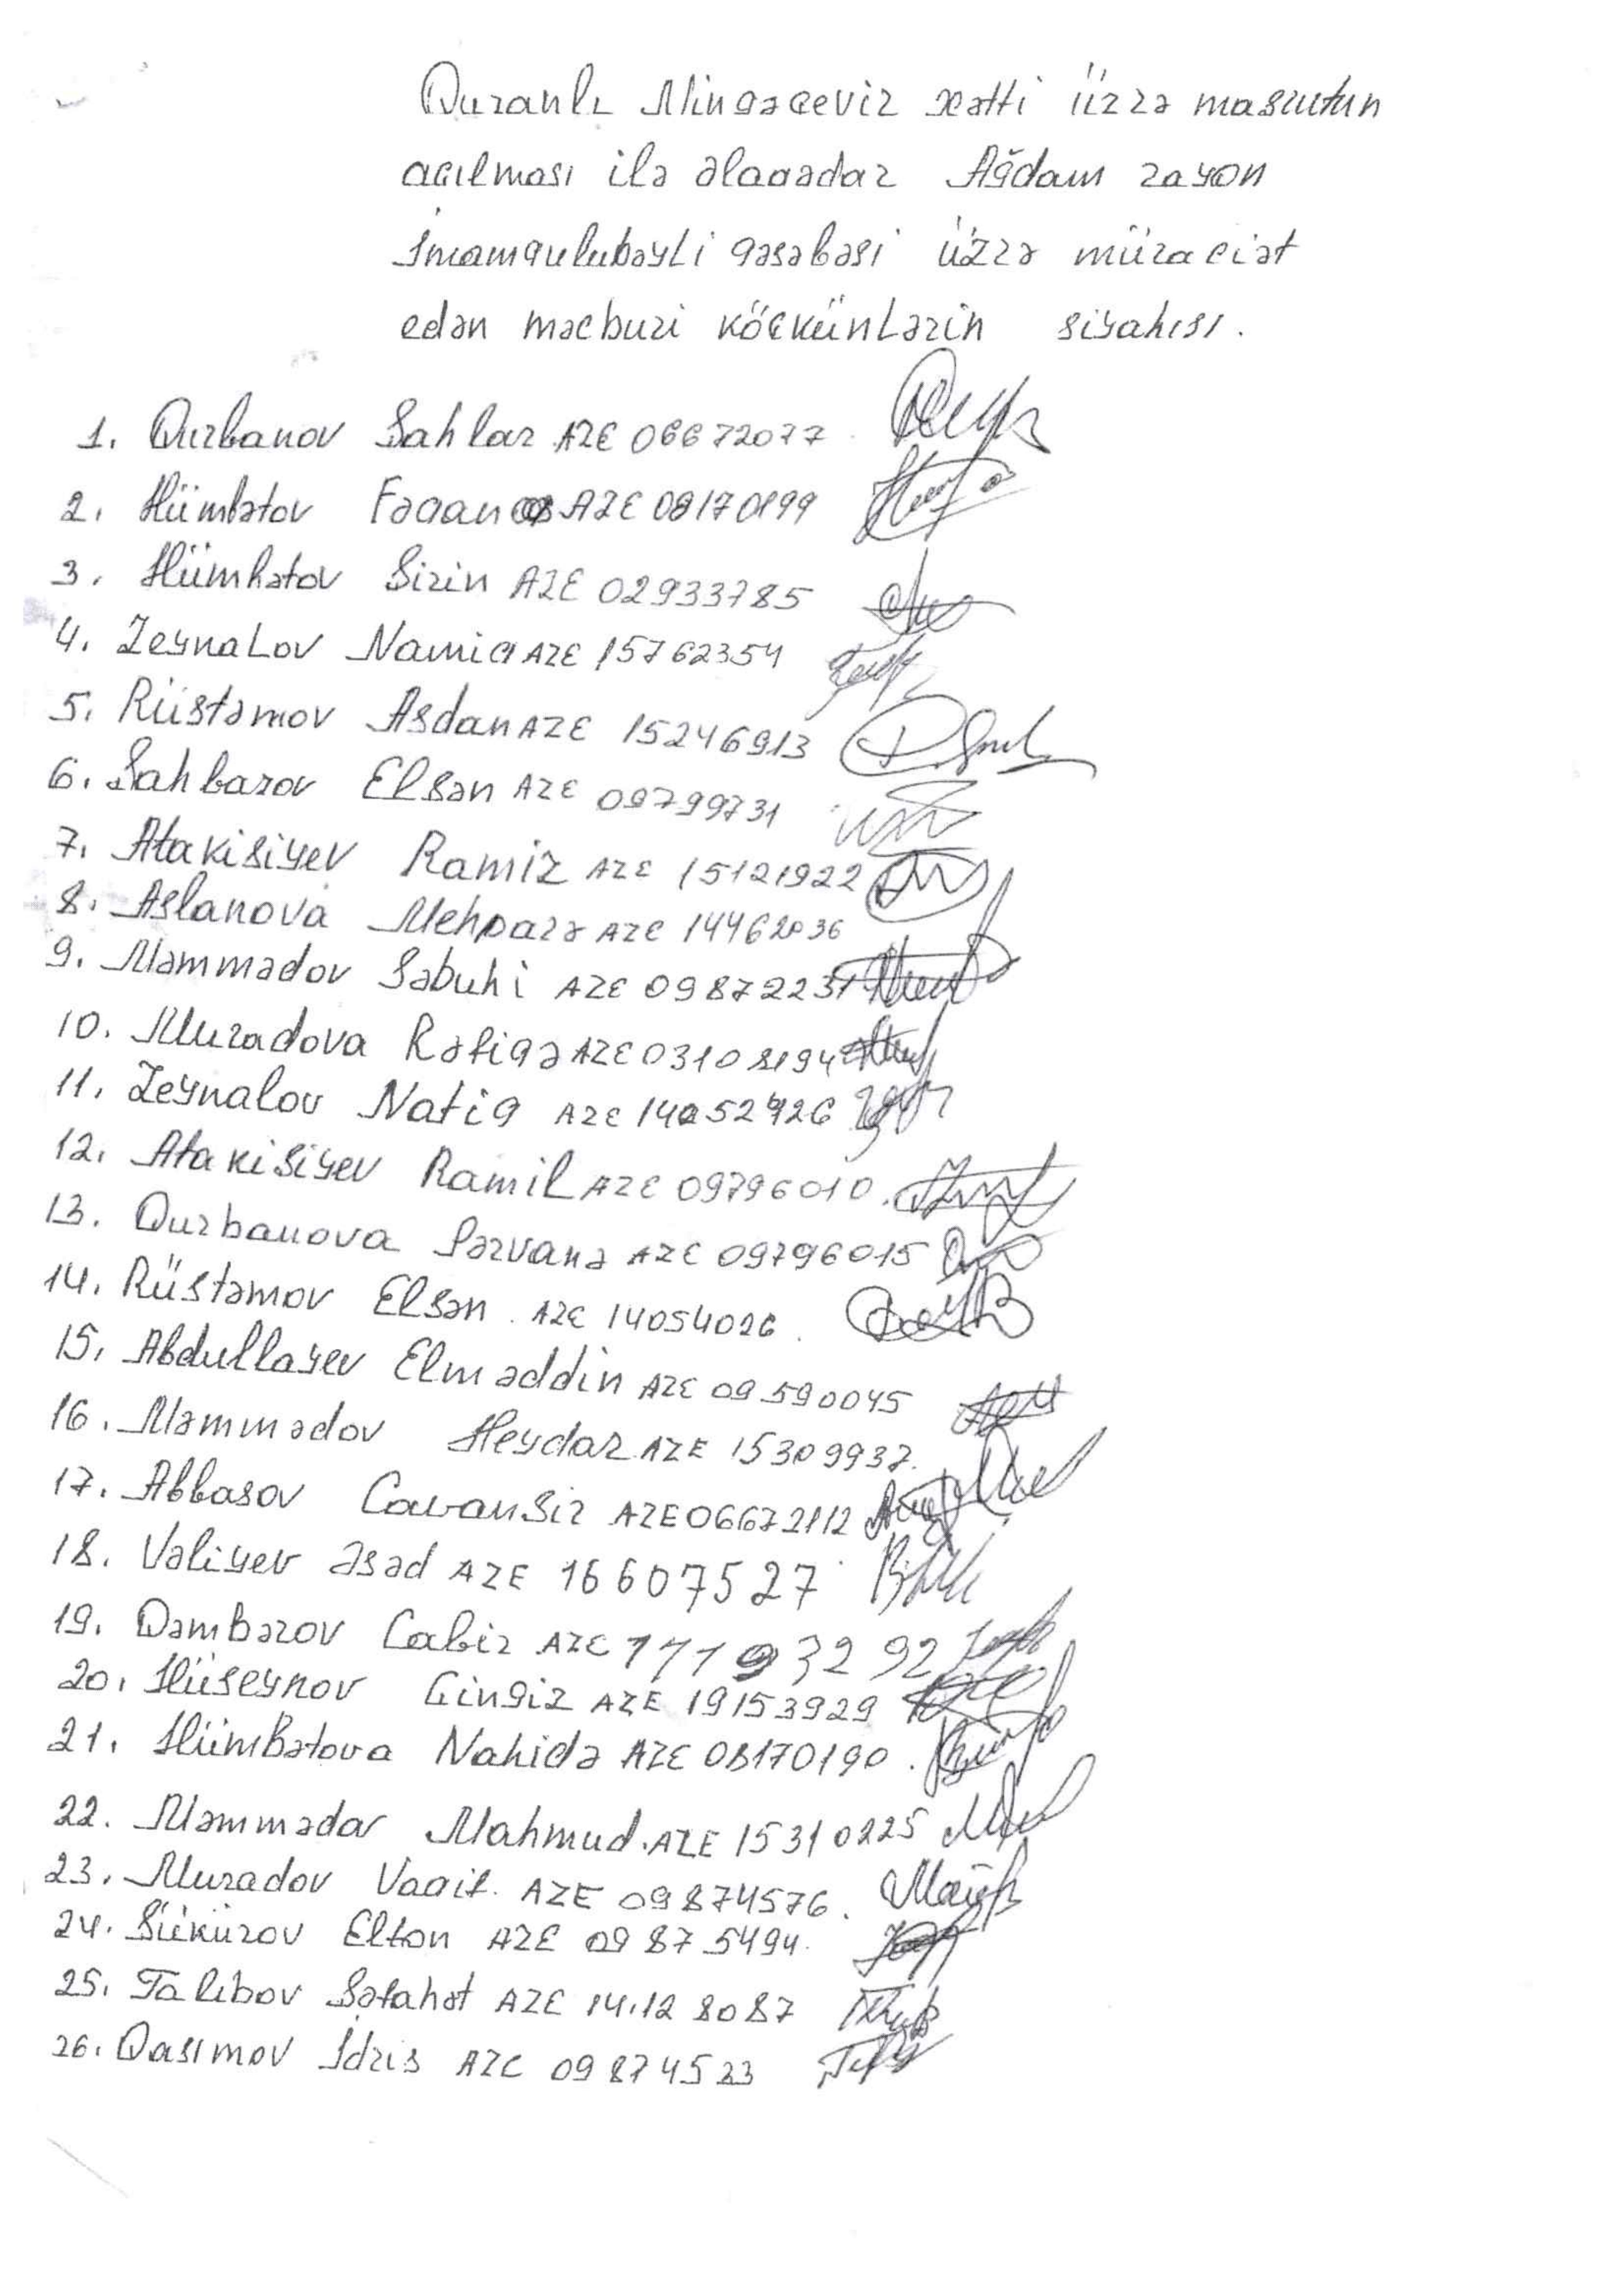 Quzanlı Mingəçeviz xətti üzzə maszutun
açılması ilə əlaqədaz Ağdam zayon
İmamqulubəyli qəsəbəsi üzzə müzaciət
edən məcbuzi köçkünləzin siyahısı.
1. Quzbanov Sahlaz AZE 06672077
2. Hümbətov Fəqan AZE 08170199
3. Hümbətov Sizin AZE 02933785
4. Zeynalov Namiq AZE 15762354
5. Rüstəmov Asdan AZE 15246913
6. Sahbazov Elsən AZE 09799731
7. Atakisiyev Ramiz AZE 15121922
8. Aslanova Mehpazə AZE 14462036
9. Məmmədov Səbuhi AZE 09872231
10. Muzadova Rəfiqə AZE 03108194
11. Zeynalov Natiq AZE
12. Atakisiyev Ramil AZE 09796010.
13. Quzbanova Pəzvanə AZE 09796015
14. Rüstəmov Elsən. AZE 14054026.
15. Abdullayev Elməddin AZE 09590045
16. Məmmədov Heydaz AZE 15309937.
17. Abbasov Cavansiz AZE 06672112
18. Vəliyev Əsəd AZE 16607527
19. Qəmbəzov Cabiz AZE 17193292
20. Hüseynov Çingiz AZE 19153929
21. Hümbətova Nahidə AZE 08170190.
22. Məmmədov Mahmud. AZE 15310225
23. Muzadov Vaqif. AZE 09874576.
24. Sükuzov Elton AZE 09875494.
25. Talıbov Səfahət AZE 14128087
26. Qasımov İdzis AZE 09874523